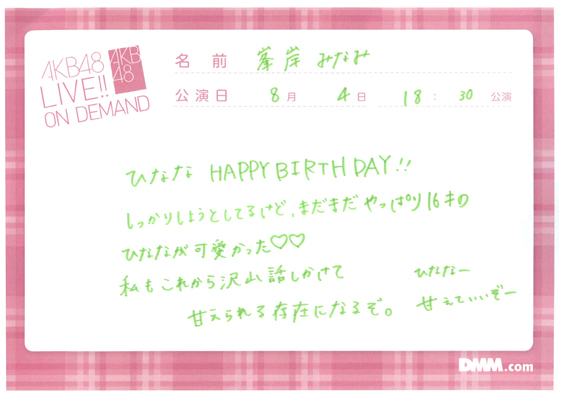 AKB48
LIVE!!
ON DEMAND
AKB
48
名前 峯岸 みなみ
公演日 8月 4日 18:30 公演
ひなな HAPPY BIRTHDAY!!
しっかりしようとしてるけど、まだまだやっぱり16才の
ひななが可愛かった♡♡
私もこれから沢山話しかけて
甘えられる存在になるぞ。
ひななー
甘えていいぞー
DMM.com